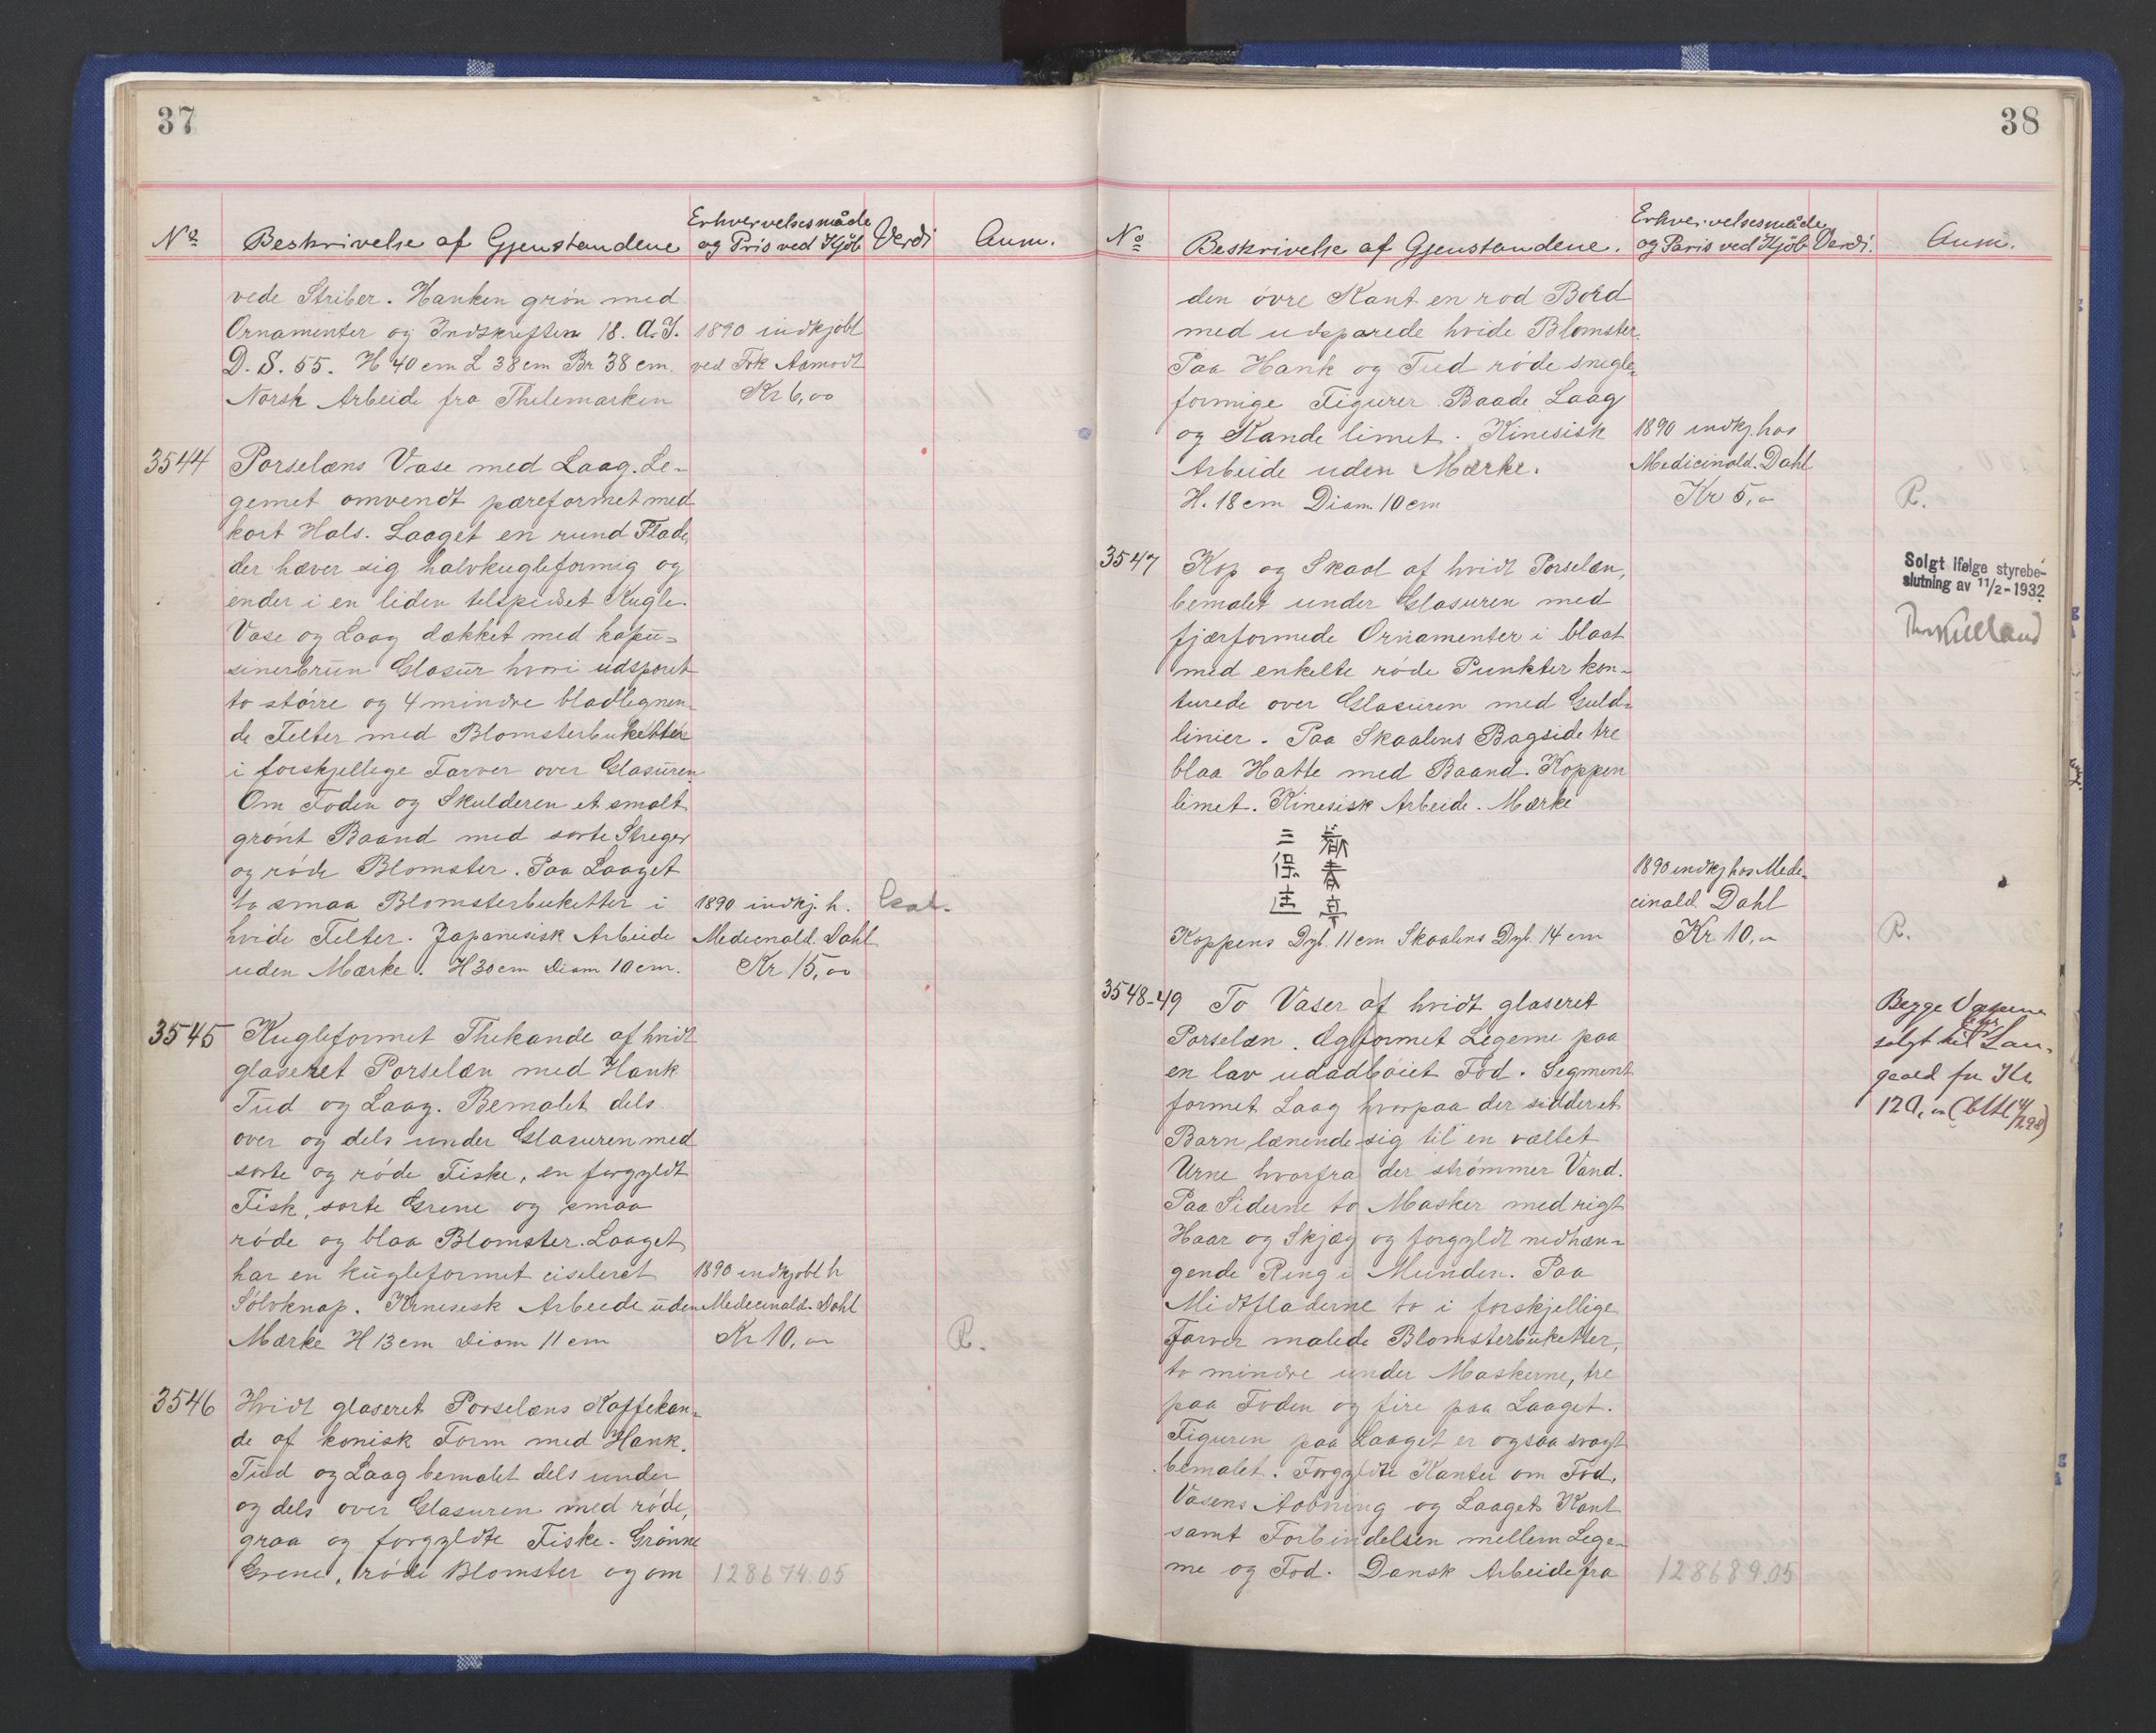 37
No Beskrivelse af Gjenstandene Erhvervelsesmåde og Pris ved Kjöb Verdi Anm.
vede Striber. Hanken grön med
Ornamenter og Indskriften 18. A. I. 1890 indkjöbt
D. S. 55. H 40 cm L 38 cm Br 38 cm. ved Frk Aamodt
Norsk Arbeide fra Thelemarken Kr 6,00
3544 Porselæns Vase med Laag. Le-
gemet omvendt pæreformet med
kort Hals. Laaget en rund Flade,
der hæver sig halvkugleformig og
ender i en liden tilspidset Kugle.
Vase og Laag dækket med kapu-
sinerbrun Glasur hvori udsparet
to större og 4 mindre bladlegnen-
de Felter med Blomsterbuketter
i forskjellige Farver over Glasuren.
Om Foden og Skulderen et smalt
grönt Baand med sorte Streger
og röde Blomster. Paa Laaget
to smaa Blomsterbuketter i 1890 indkj. h.
hvide Felter. Japanesisk Arbeide Medicinald. Dahl
uden Mærke. H 30 cm Diam 10 cm. Kr 15,00
3545 Kugleformet Thekande af hvidt
glaseret Porselæn med Hank
Tud og Laag. Bemalet dels
over og dels under Glasuren med
sorte og röde Fiske, en forgyldt
Fisk, sorte Grene og smaa
röde og blaa Blomster. Laaget
har en kugleformet ciseleret 1890 indkjöbt h
Sölvknap. Kinesisk Arbeide uden Medicinald. Dahl
Mærke H 13 cm Diam 11 cm Kr 10,00 R.
3546 Hvidt glaseret Porselæns Kaffekan-
de af konisk Form med Hank,
Tud og Laag bemalet dels under
og dels over Glasuren med röde,
graa og forgyldte Fiske. Grönne
Grene, röde Blomster og om 128674.05
38
No Beskrivelse af Gjenstandene. Erhvervelsesmåde og Paris ved Kjöb Verdi. Anm.
den övre Kant en rod Bord
med udsparede hvide Blomster.
Paa Hank og Tud röde snegle-
formige Figurer. Baade Laag
og Kande limet. Kinesisk 1890 indkj. hos
Arbeide uden Mærke. Medicinald. Dahl
H. 18 cm Diam 10 cm Kr 5,00 R.
3547 Kop og Skaal af hvidt Porselæn, Solgt ifølge styrebe-
bemalet under Glasuren med slutning av 11/2-1932
fjærformede Ornamenter i blaat
med enkelte röde Punkter kon-
turede over Glasuren med Guld-
linier. Paa Skaalens Bagside tre
blaa Hatte med Baand. Koppen
limet. Kinesisk Arbeide. Mærke
三保
春亭
1890 indkj hos Mede-
cinald. Dahl
Koppens Dyb. 11 cm Skaalens Dyb. 14 cm Kr 10,00 R.
3548-49 To Vaser af hvidt glaseret Begge Vaserne
Porselæn. Ægformet Legeme paa solgt til Lan-
en lav udadböiet Fod. Segment gaard for Kr
formet Laag hvorpaa der sidder et
Barn lænende sig til en væltet
Urne hvorfra der strömmer Vand.
Paa Siderne to Masker med rigt
Haar og Skjæg og forgyldt nedhæn-
gende Ring i Munden. Paa
Midtfladerne to i forskjellige
Farver malede Blomsterbuketter,
to mindre under Maskerne, tre
paa Foden og fire paa Laaget.
Figuren paa Laaget er ogsaa svagt
bemalet. Forgyldte Kanter om Fod,
Vasens Aabning og Laagets Kant
samt Forbindelsen mellem Lege-
me og Fod. Dansk Arbeide fra 128689.05